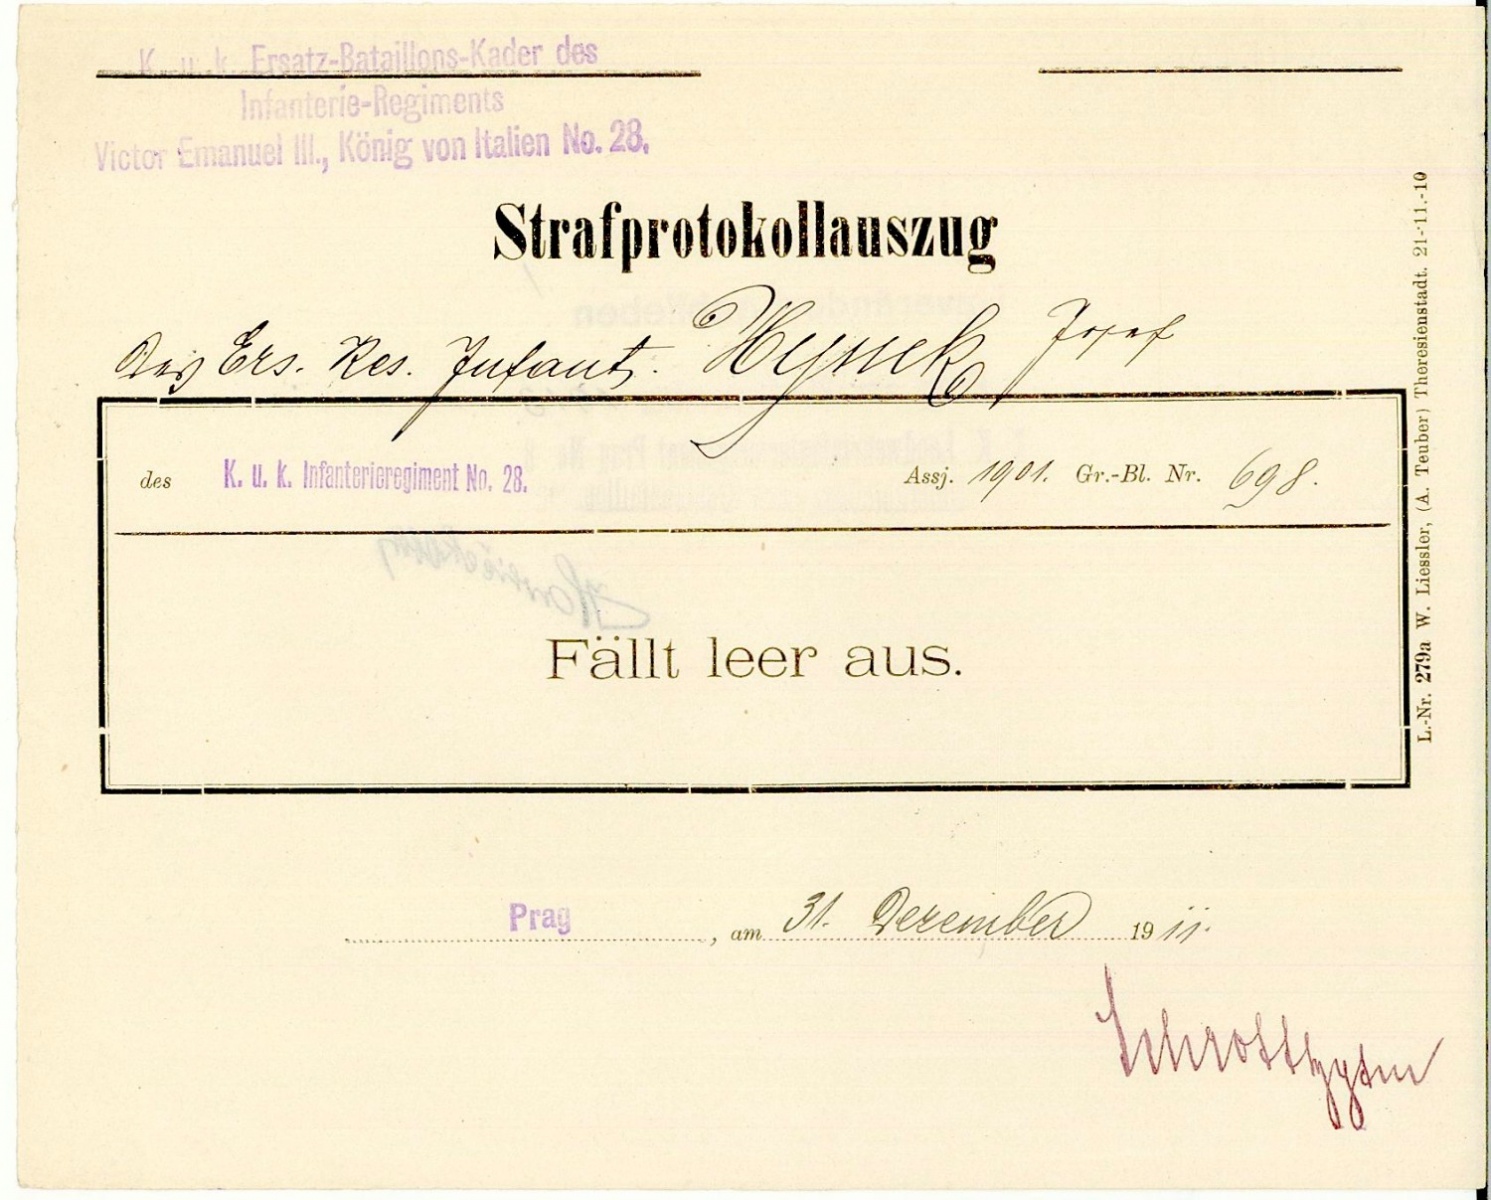 K. u. k. Ersatz-Bataillons-Kader des
Infanterie-Regiments
Victor Emanuel III., König von Italien No. 28.
Strafprotokollauszug
des Ers. Res. Infant. Hynek Josef
des K. u. k. Infanterieregiment No. 28. Assj. 1901. Gr.-Bl. Nr. 698.
Fällt leer aus.
Prag, am 31. Dezember 1911.
L.-Nr. 279a W. Liessler, (A. Teuber) Theresienstadt. 21-11.-10